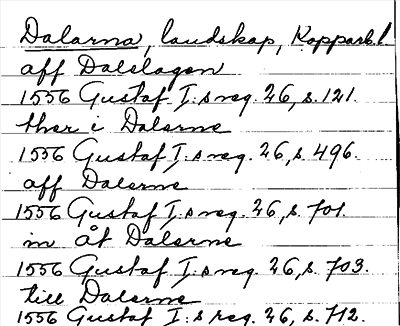 Dalarna, landskap, Kopparb. l
aff Dalelagen
1556 Gustaf I:s reg. 26, s. 121.
ther i Dalerne
1556 Gustaf I:s reg. 26, s. 496.
aff Dalerne
1556 Gustaf I:s reg. 26, s. 701.
in åt Dalerne
1556 Gustaf I:s reg. 26, s. 703.
till Dalerne
1556 Gustaf I:s reg. 26, s. 712.